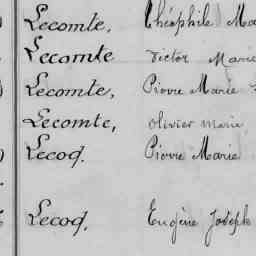 Lecomte, Théophile Ma
Lecomte Victor Marie
Lecomte, Pierre Marie
Lecomte, Olivier Marie
Lecoq. Pierre Marie
Lecoq. Eugène Joseph